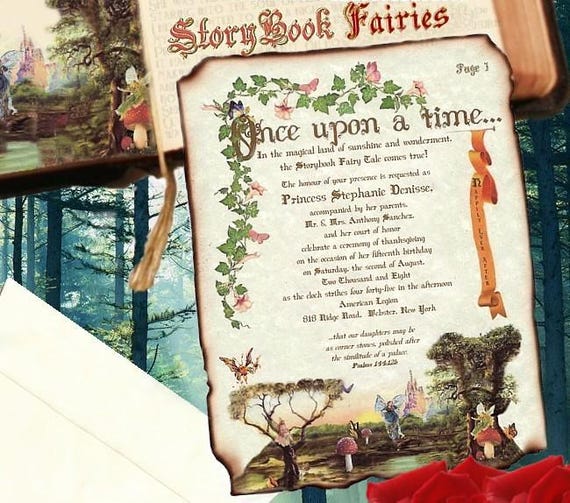 StoryBook Fairies
Page 1
Once upon a time...
In the magical land of sunshine and wonderment,
the Storybook Fairy Tale comes true!
The honour of your presence is requested as
Princess Stephanie Denisse,
accompanied by her parents,
Mr. & Mrs. Anthony Sanchez,
and her court of honor
celebrate a ceremony of thanksgiving
on the occasion of her fifteenth birthday
on Saturday, the second of August,
Two Thousand and Eight
as the clock strikes four forty-five in the afternoon
American Legion
818 Ridge Road, Webster, New York
...that our daughters may be
as corner stones, polished after
the similitude of a palace.
Psalms 144:12b
Happily Ever After